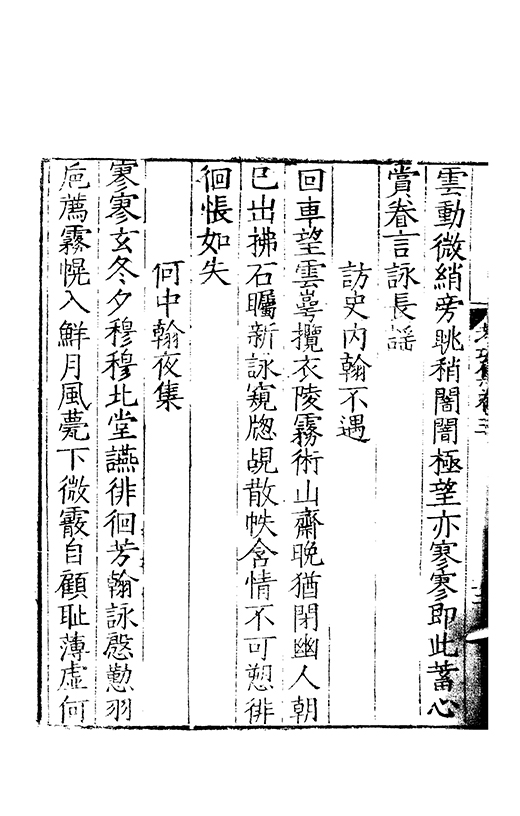 雲動微綃旁眺稍闇闇極望亦寥寥即此蓄心
賞眷言詠長謡
訪史内翰不遇
回車望雲蕚攬衣陵霧術山齋晚猶閉幽人朝
已出拂石矚新詠窺牎覘散帙含情不可愬徘
徊悵如失
何中翰夜集
寥寥玄冬夕穆穆北堂讌徘徊芳翰詠慇懃羽
巵薦霧幌入鮮月風甍下微霰自顧耻薄虚何